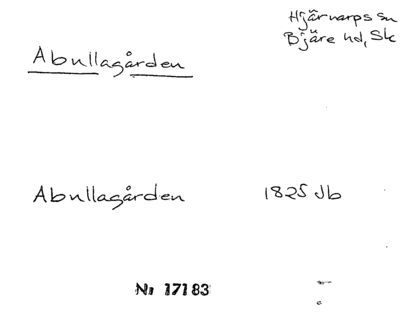 Hjärnarps sn
Bjäre hd, Sk
Abullagården
Abullagården 1825 Jb
Nr 17183